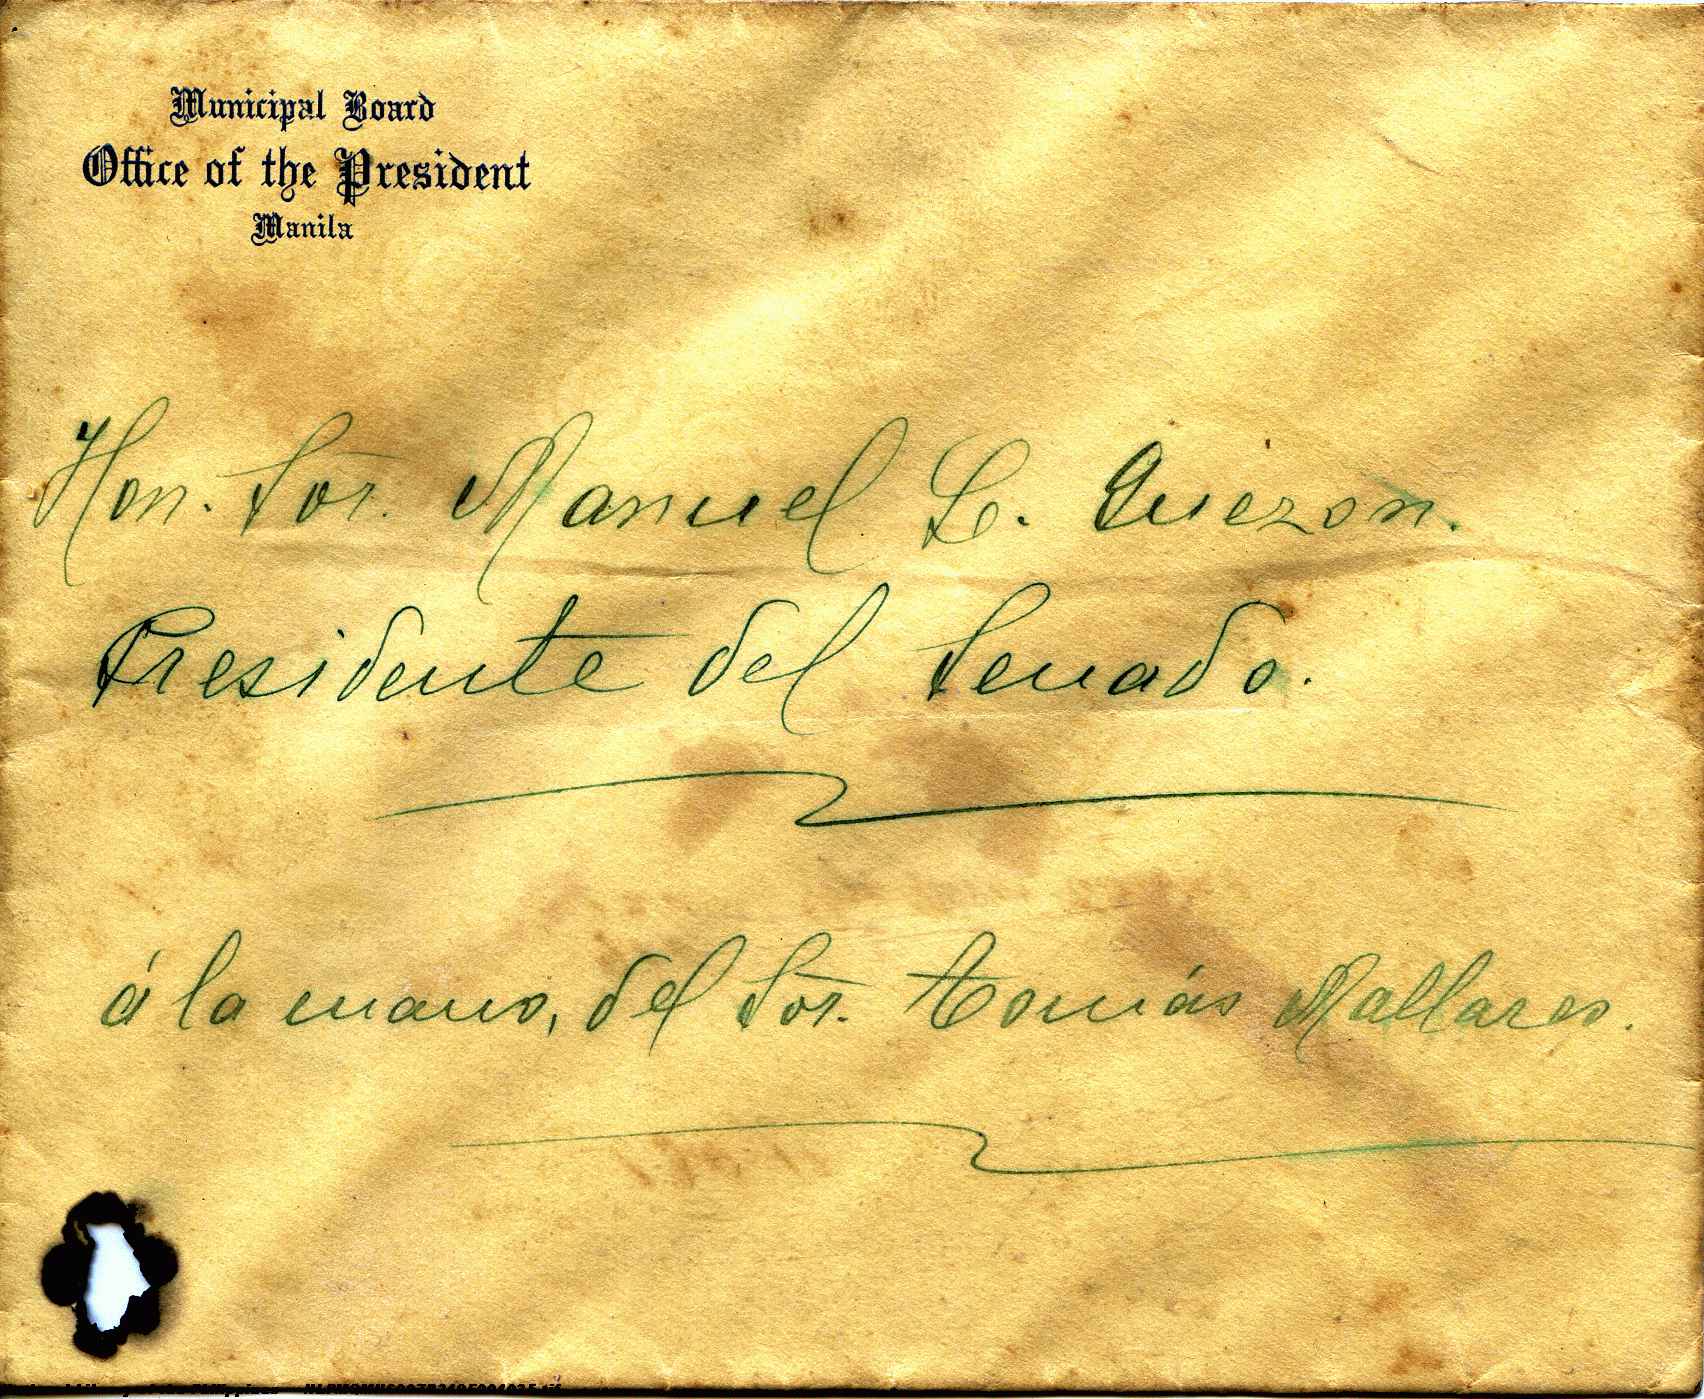 Municipal Board
Office of the President
Manila
Hon. Sor. Manuel L. Quezon.
Presidente del Senado.
á la mano, del Sor. Tomás Mallares.